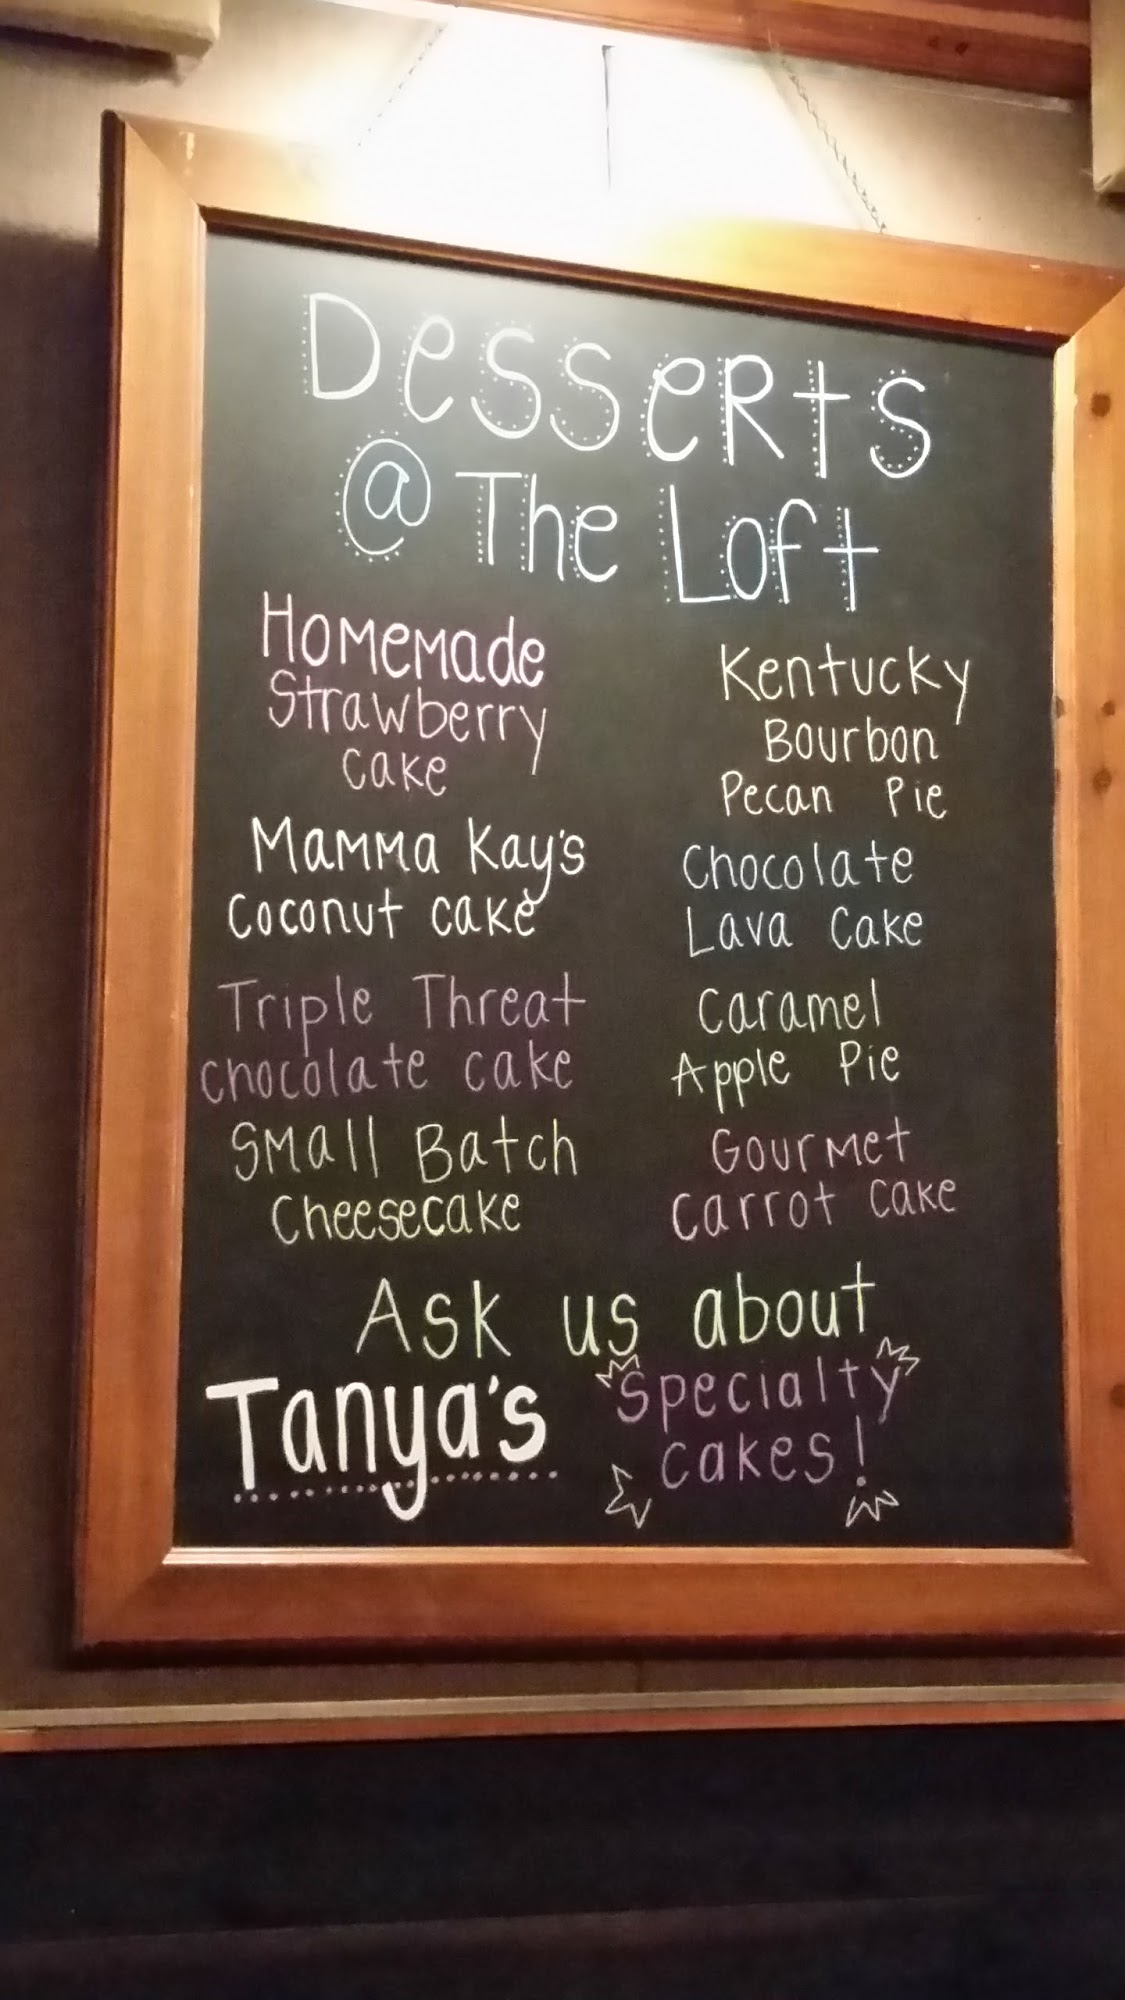 Desserts
@ The Loft
Homemade
Strawberry
cake
Mamma Kay's
Coconut cake
Triple Threat
chocolate cake
Small Batch
Cheesecake
Kentucky
Bourbon
Pecan Pie
Chocolate
Lava Cake
Caramel
Apple Pie
Gourmet
Carrot Cake
Ask us about
Tanya's
Specialty
cakes!